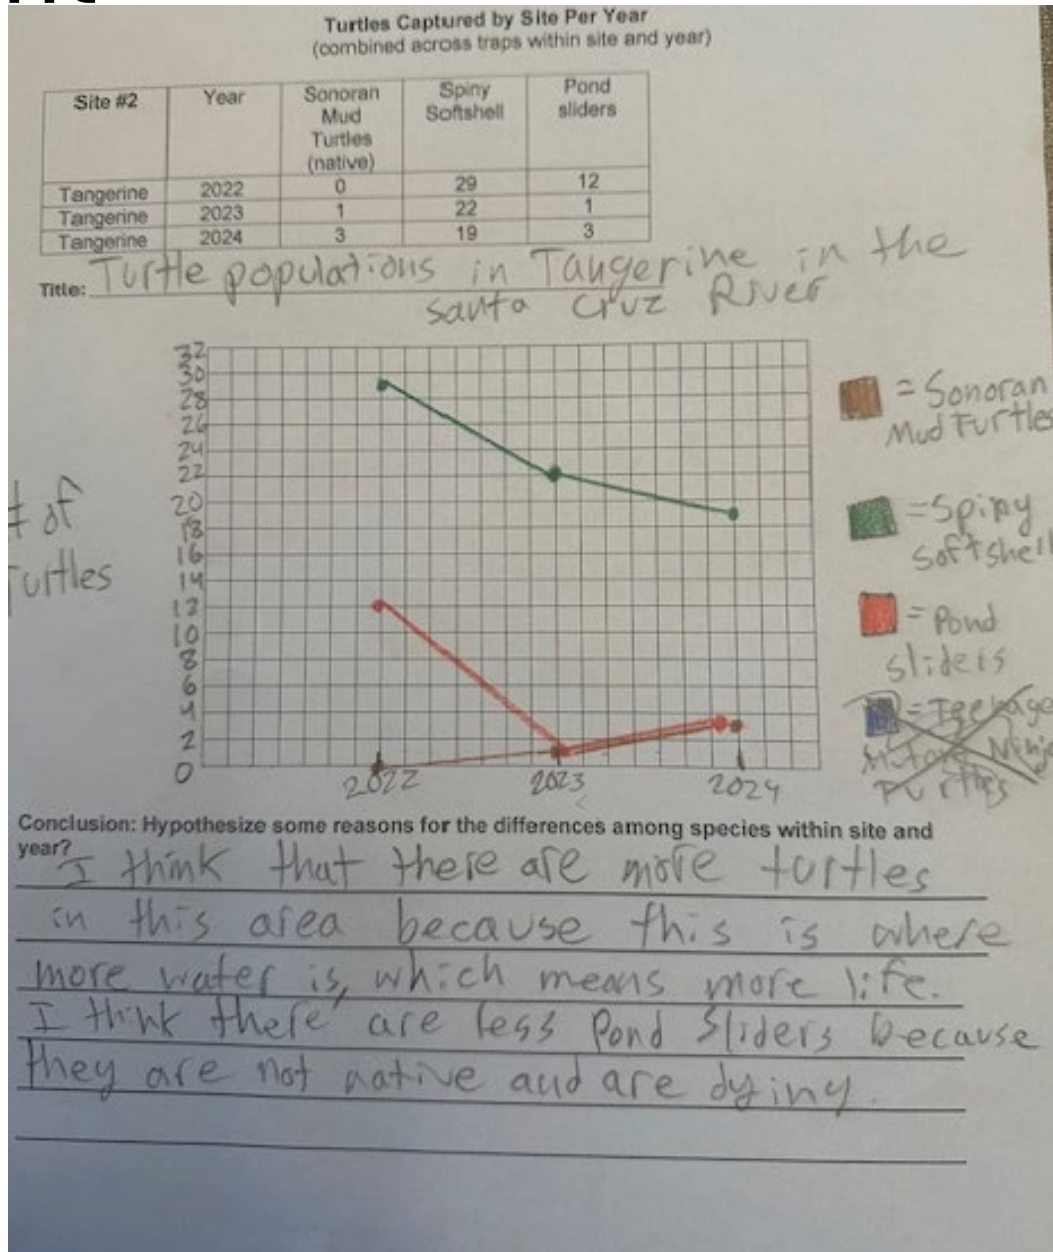 Turtles Captured by Site Per Year
(combined across traps within site and year)
Site #2 Year Sonoran Mud Turtles (native) Spiny Softshell Pond sliders
Tangerine 2022 0 29 12
Tangerine 2023 1 22 1
Tangerine 2024 3 19 3
Title: Turtle populations in Tangerine in the
santa Cruz River
32
30
28
26
24
22
20
18
16
14
12
10
8
6
4
2
0
# of
Turtles
2022 2023 2024
= Sonoran
Mud Turtles
= Spiny
Softshell
= Pond
sliders
= Teenage
Mutant Ninja
Turtles
Conclusion: Hypothesize some reasons for the differences among species within site and
year?
I think that there are more turtles
in this area because this is where
more water is, which means more life.
I think there are less Pond Sliders because
they are not native and are dying.